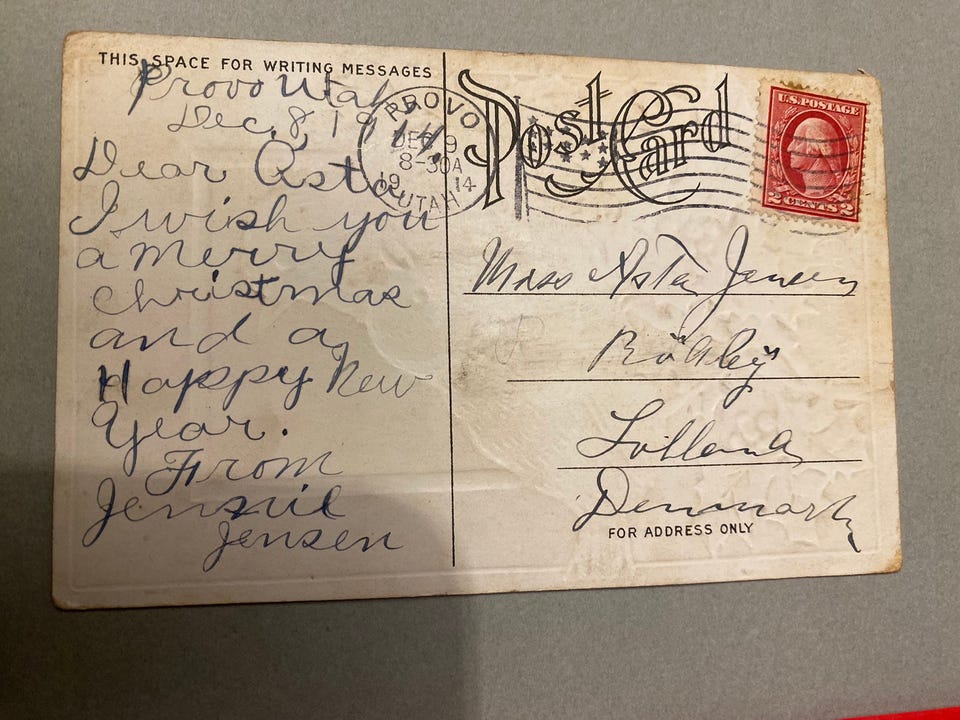 THIS SPACE FOR WRITING MESSAGES
Provo Utah
Dec, 8, 1914,
Dear Asta
I wish you
a merry
Christmas
and a
Happy New
Year.
From
Jennie
Jensen
PROVO
DEC 9
8-30A
1914
UTAH
Post Card
U.S. POSTAGE
2 CENTS 2
Miss Asta Jensen
Rödby
Lolland
Denmark
FOR ADDRESS ONLY